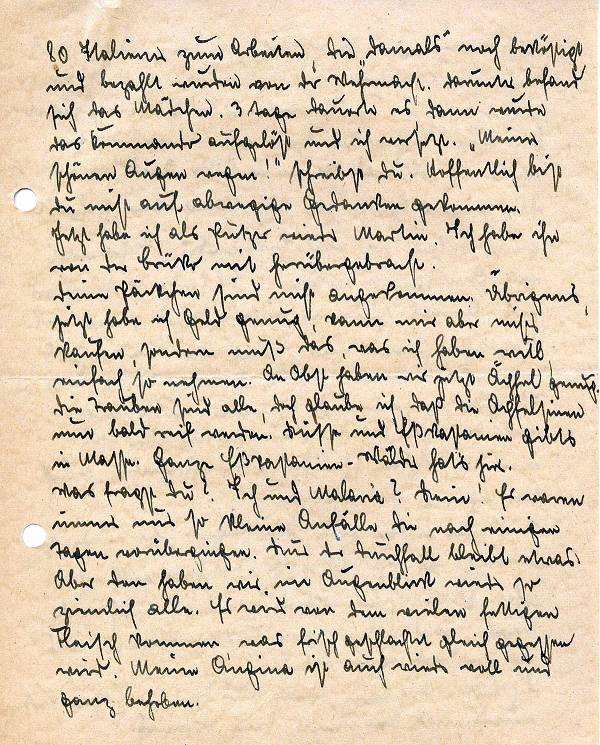 80 Italiener zum Arbeiten, die „damals“ noch beköstigt
und bezahlt wurden von der Wehrmacht. Darunter befand
sich das Mädchen. 3 Tage dauerte es dann wurde
das Kommando aufgelöst und ich versetzt. „Meiner
schönen Augen wegen!“ schreibst du. Hoffentlich bist
du nicht auf abwegige Gedanken gekommen.
Jetzt habe ich als Putzer wieder Martin. Ich habe ihn
von der Brücke mit herübergebracht.
Deine Päckchen sind nicht angekommen. Übrigens,
jetzt habe ich Geld genug, kann mir aber nichts
kaufen, sondern muß das, was ich haben will
einfach so nehmen. An Obst haben wir jetzt Äpfel genug.
Die Trauben sind alle, doch glaube ich, daß die Apfelsinen
nun bald reif werden. Nüsse und Eßkastanien gibts
in Masse. Ganze Eßkastanien-Wälder hats hier.
Was fragst du? Ich und Malaria? Nein! Es waren
immer nur so kleine Anfälle, die nach einigen
Tagen vorübergingen. Nur der Durchfall bleibt etwas.
Aber den haben wir im Augenblick wieder so
ziemlich alle. Es wird von dem vielen fettigen
Fleisch kommen, was frisch geschlachtet gleich gegessen
wird. Meine Angina ist auch wieder voll und
ganz behoben.